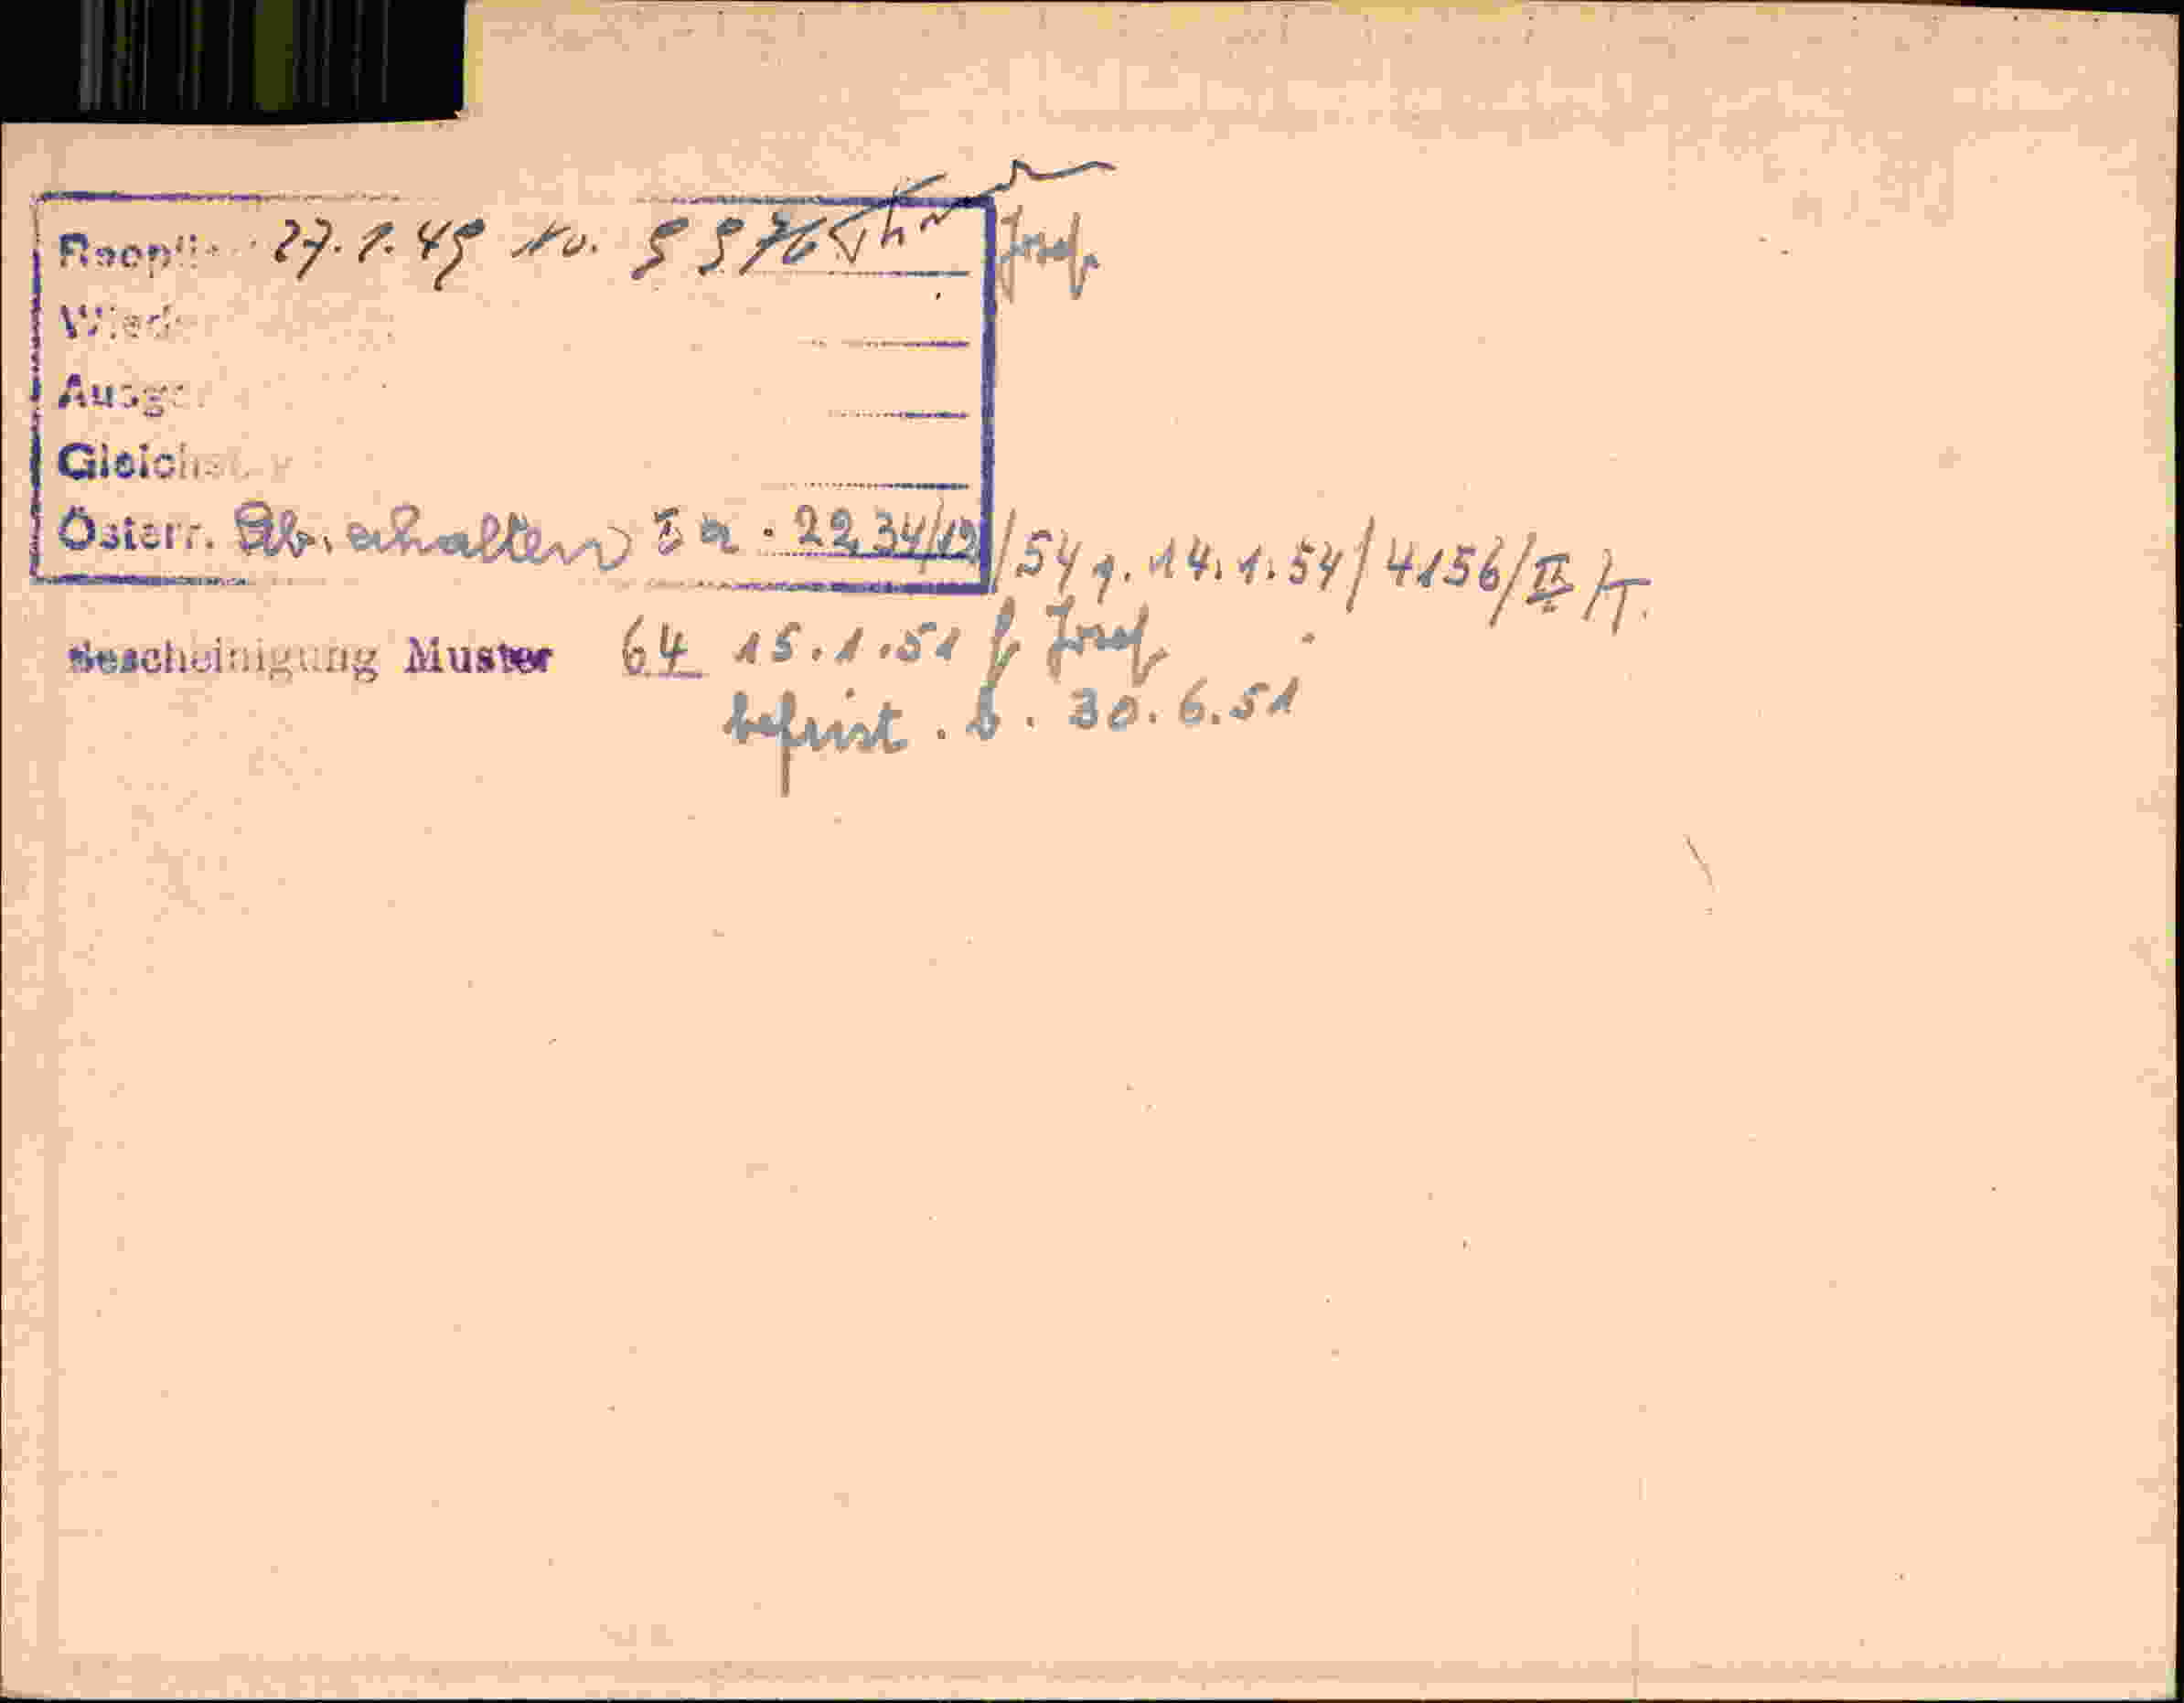 27. 1. 49 No.
Josef
Wied
Ausge
Gleichst.
Österr. Stb. erhalten Za. 22,34/12/54 v. 14.1.54/4156/II/T.
Bescheinigung Muster 64 15.1.51 f. Josef
befrist. b. 30.6.51